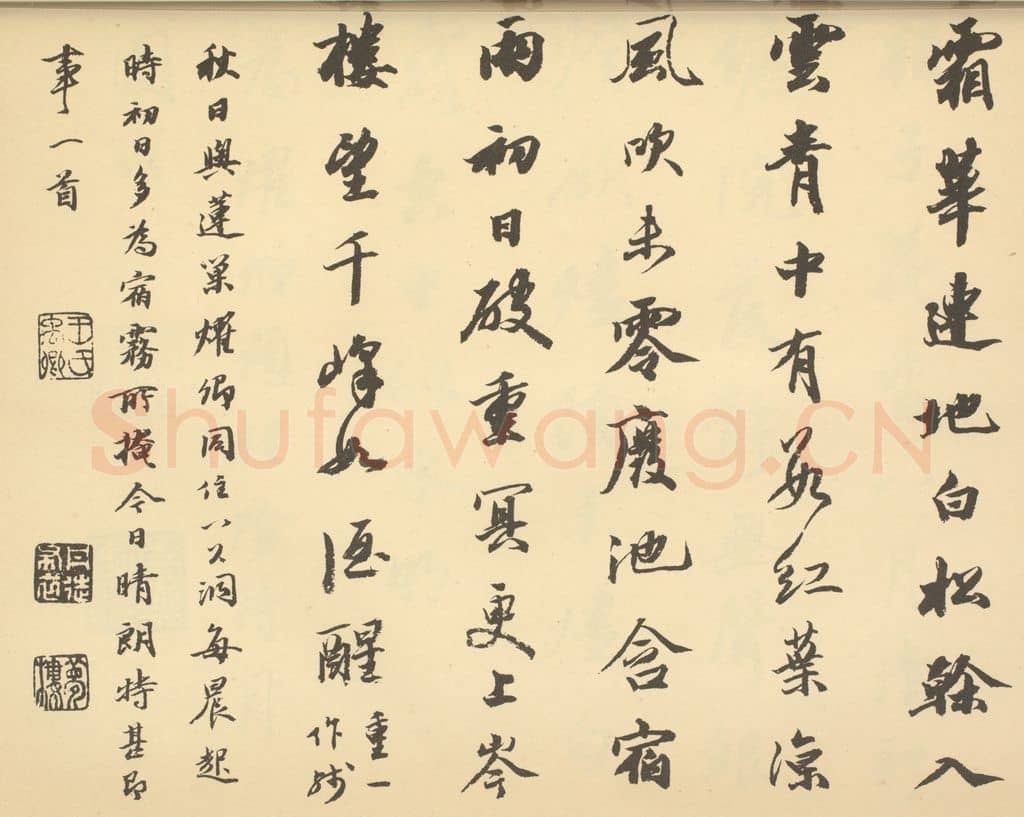 霜華連地白松榦入
雲青中有數紅葉涼
風吹未零廢池含宿
雨初日破重冥更上岑
樓望千峰如酒醒
重一
作殘
秋日與蓮巢燿卿同住八公洞每晨起
時初日多為宿霧所掩今日晴朗特甚即
事一首
Shufawang.CN